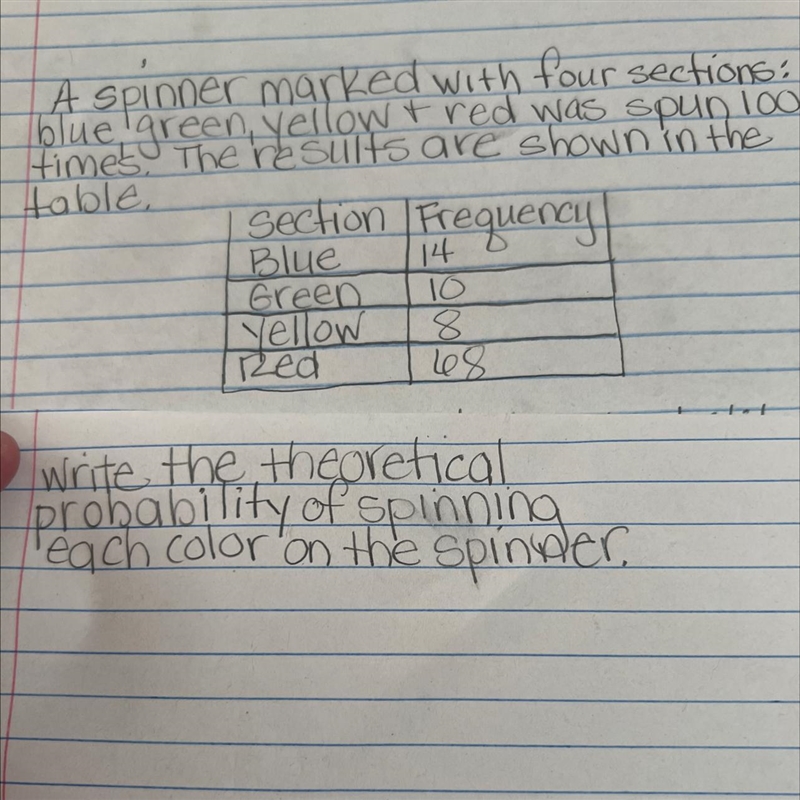 A spinner marked with four sections:
blue, green, yellow + red was spun 100
times. The results are shown in the
table.
Section Frequency
Blue 14
Green 10
Yellow 8
Red 68
Write the theoretical
probability of spinning
each color on the spinner.